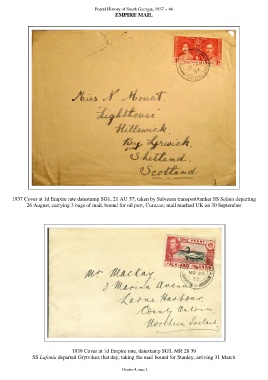 Postal History of South Georgia, 1937 – 46
EMPIRE MAIL
Miss N. Mouat.
Lighthouse
Hillswick.
By Lerwick,
Shetland.
Scotland
1937 Cover at 1d Empire rate datestamp SG1, 21 AU 37; taken by Salvesen transport/tanker SS Salsus departing
26 August, carrying 3 bags of mail, bound for oil port, Curacao; mail reached UK on 30 September
ONE PENNY
FALKLAND ISLANDS
MR 28
39
Mr Mackay
3 Marina Avenue,
Larne Harbour,
County Antrim
Northern Ireland
1939 Cover at 1d Empire rate, datestamp SG3, MR 28 39
SS Lafonia departed Grytviken that day, taking the mail bound for Stanley, arriving 31 March
Chapter 4, page 2